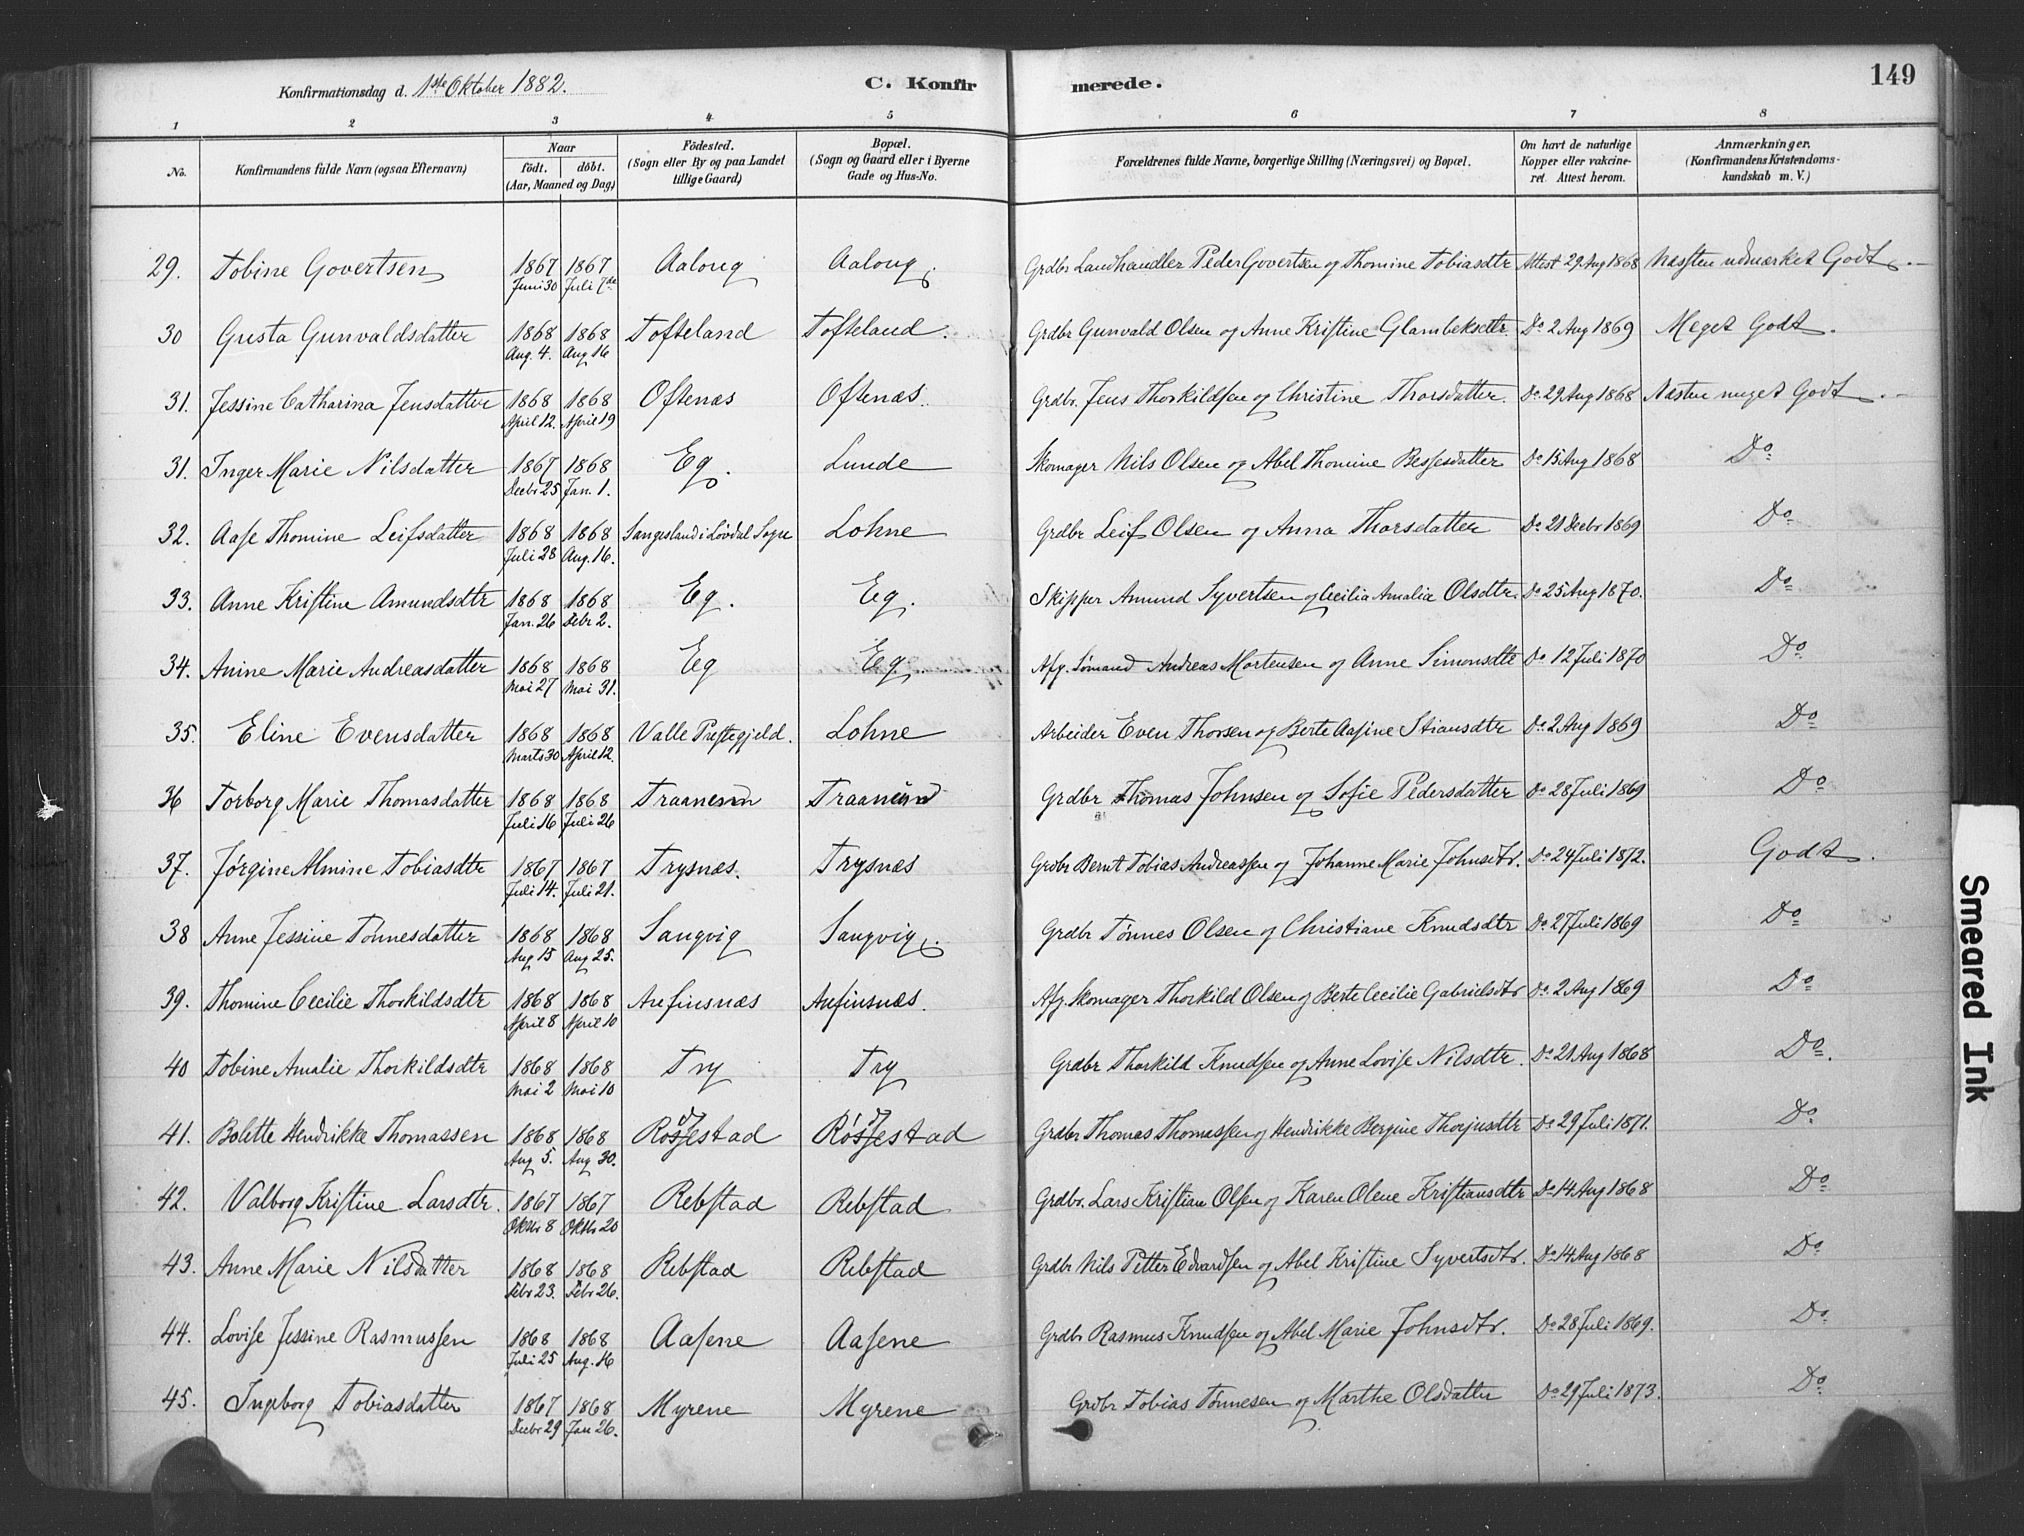 Konfirmationsdag d. 1ste Oktober 1882.
C. Konfirmerede.
149
1 2 3 4 5 6 7 8
No.
Konfirmandens fulde Navn (ogsaa Efternavn)
Naar
født. døbt.
(Aar, Maaned og Dag)
Fødested.
(Sogn eller By og paa Landet
tillige Gaard)
Bopæl.
(Sogn og Gaard eller i Byerne
Gade og Hus-No.
Forældrenes fulde Navne, borgerlige Stilling (Næringsvei) og Bopæl.
Om havt de naturlige
Kopper eller vakcine-
ret. Attest herom.
Anmærkninger.
(Konfirmandens Kristendoms-
kundskab m. V.)
29. Tobine Govertsen 1867 Juni 30 1867 Juli 7de Aaloug Aaloug. Grdbr Landhandler Peder Govertsen og Thomine Tobiasdtr Attest 29 Aug 1868 Næsten udmærket Godt.
30 Gusta Gunvaldsdatter 1868 Aug. 4. 1868 Aug 16 Tofteland Tofteland. Grdbr Gunvald Olsen og Anne Kristine Glambeksdtr. Do 2 Aug 1869 Meget Godt.
31. Jessine Catharina Jensdatter 1868 April 12. 1868 April 19 Oftenæs Oftenæs. Grdbr. Jens Thorkildsen og Christine Thorsdatter. Do 29 Aug 1868 Næsten meget Godt.
31. Inger Marie Nilsdatter 1867 Decbr 25 1868 Jan. 1. Eg. Lunde Skomager Nils Olsen og Abel Thomine Bessesdatter Do 15 Aug 1868 Do
32. Aase Thomine Leifsdatter 1868 Juli 28 1868 Aug. 16. Sangesland i Løvdal Sogn Lohne Grdbr Leif Olsen og Anna Thorsdatter Do 21 Decbr 1869 Do
33. Anne Kristine Amundsdtr 1868 Jan. 26 1868 Febr 2. Eg. Eg. Skipper Amund Syvertsen og Cecilia Amalia Olsdtr. Do 25 Aug 1870. Do
34. Anine Marie Andreasdatter 1868 Mai 27 1868 Mai 31. Eg Eg. Afg. Sømand Andreas Mortensen og Anne Simonsdtr Do 12 Juli 1870 Do
35. Eline Evensdatter 1868 Marts 30 1868 April 12. Valle Præstegjeld. Lohne Arbeider Even Thorsen og Berte Aasine Stiansdtr Do 2 Aug 1869 Do
36 Torborg Marie Thomasdatter 1868 Juli 16 1868 Juli 26 Traanesund Traanesund Grdbr Thomas Johnsen og Sofie Pedersdatter Do 28 Juli 1869 Do
37. Jørgine Almine Tobiasdtr 1867 Juli 14. 1867 Juli 21. Trysnæs. Trysnæs Grdbr Bernt Tobias Andreassen og Johanne Marie Johnsdtr. Do 24 Juli 1872. Godt.
38 Anne Jessine Tønnesdatter 1868 Aug 15 1868 Aug 25. Sangvig Sangvig. Grdbr Tønnes Olsen og Christiane Knudsdtr Do 27 Juli 1869 Do
39. Thomine Cecilie Thorkildsdtr 1868 April 8 1868 April 10 Anfinsnæs Anfinsnæs. Afg. Skomager Thorkild Olsen og Berte Cecilie Gabrielsdtr Do 2 Aug 1869 Do
40 Tobine Amalie Thorkildsdtr 1868 Mai 2 1868 Mai 10 Try Try Grdbr Thorkild Knudsen og Anne Lovise Nilsdtr. Do 21 Aug 1868 Do.
41. Bolette Hendrikke Thomassen 1868 Aug 5. 1868 Aug 30. Røsjestad Røsjestad Grdbr Thomas Thomassen og Hendrikke Bergine Thorjusdtr Do 29 Juli 1871. Do
42. Valborg Kristine Larsdtr. 1867 Oktbr 8 1867 Oktbr 20 Rebstad Rebstad Grdbr. Lars Kristian Olsen og Karen Olene Kristiansdtr Do 14 Aug 1868 Do
43. Anne Marie Nilsdatter 1868 Febr 23. 1868 Febr 26. Rebstad Rebstad Grdbr Nils Petter Edvardsen og Abel Kristine Syvertsdtr. Do 14 Aug 1868 Do
44. Lovise Jessine Rasmussen 1868 Juli 25 1868 Aug. 16 Aasene Aasene Grdbr Rasmus Knudsen og Abel Marie Johnsdtr. Do 28 Juli 1869. Do
45. Ingeborg Tobiasdatter 1867 Decbr 29 1868 Jan 26. Myrene Myrene Grdbr Tobias Tønnesen og Marthe Olsdatter Do 29 Juli 1873. Do
Smeared Ink